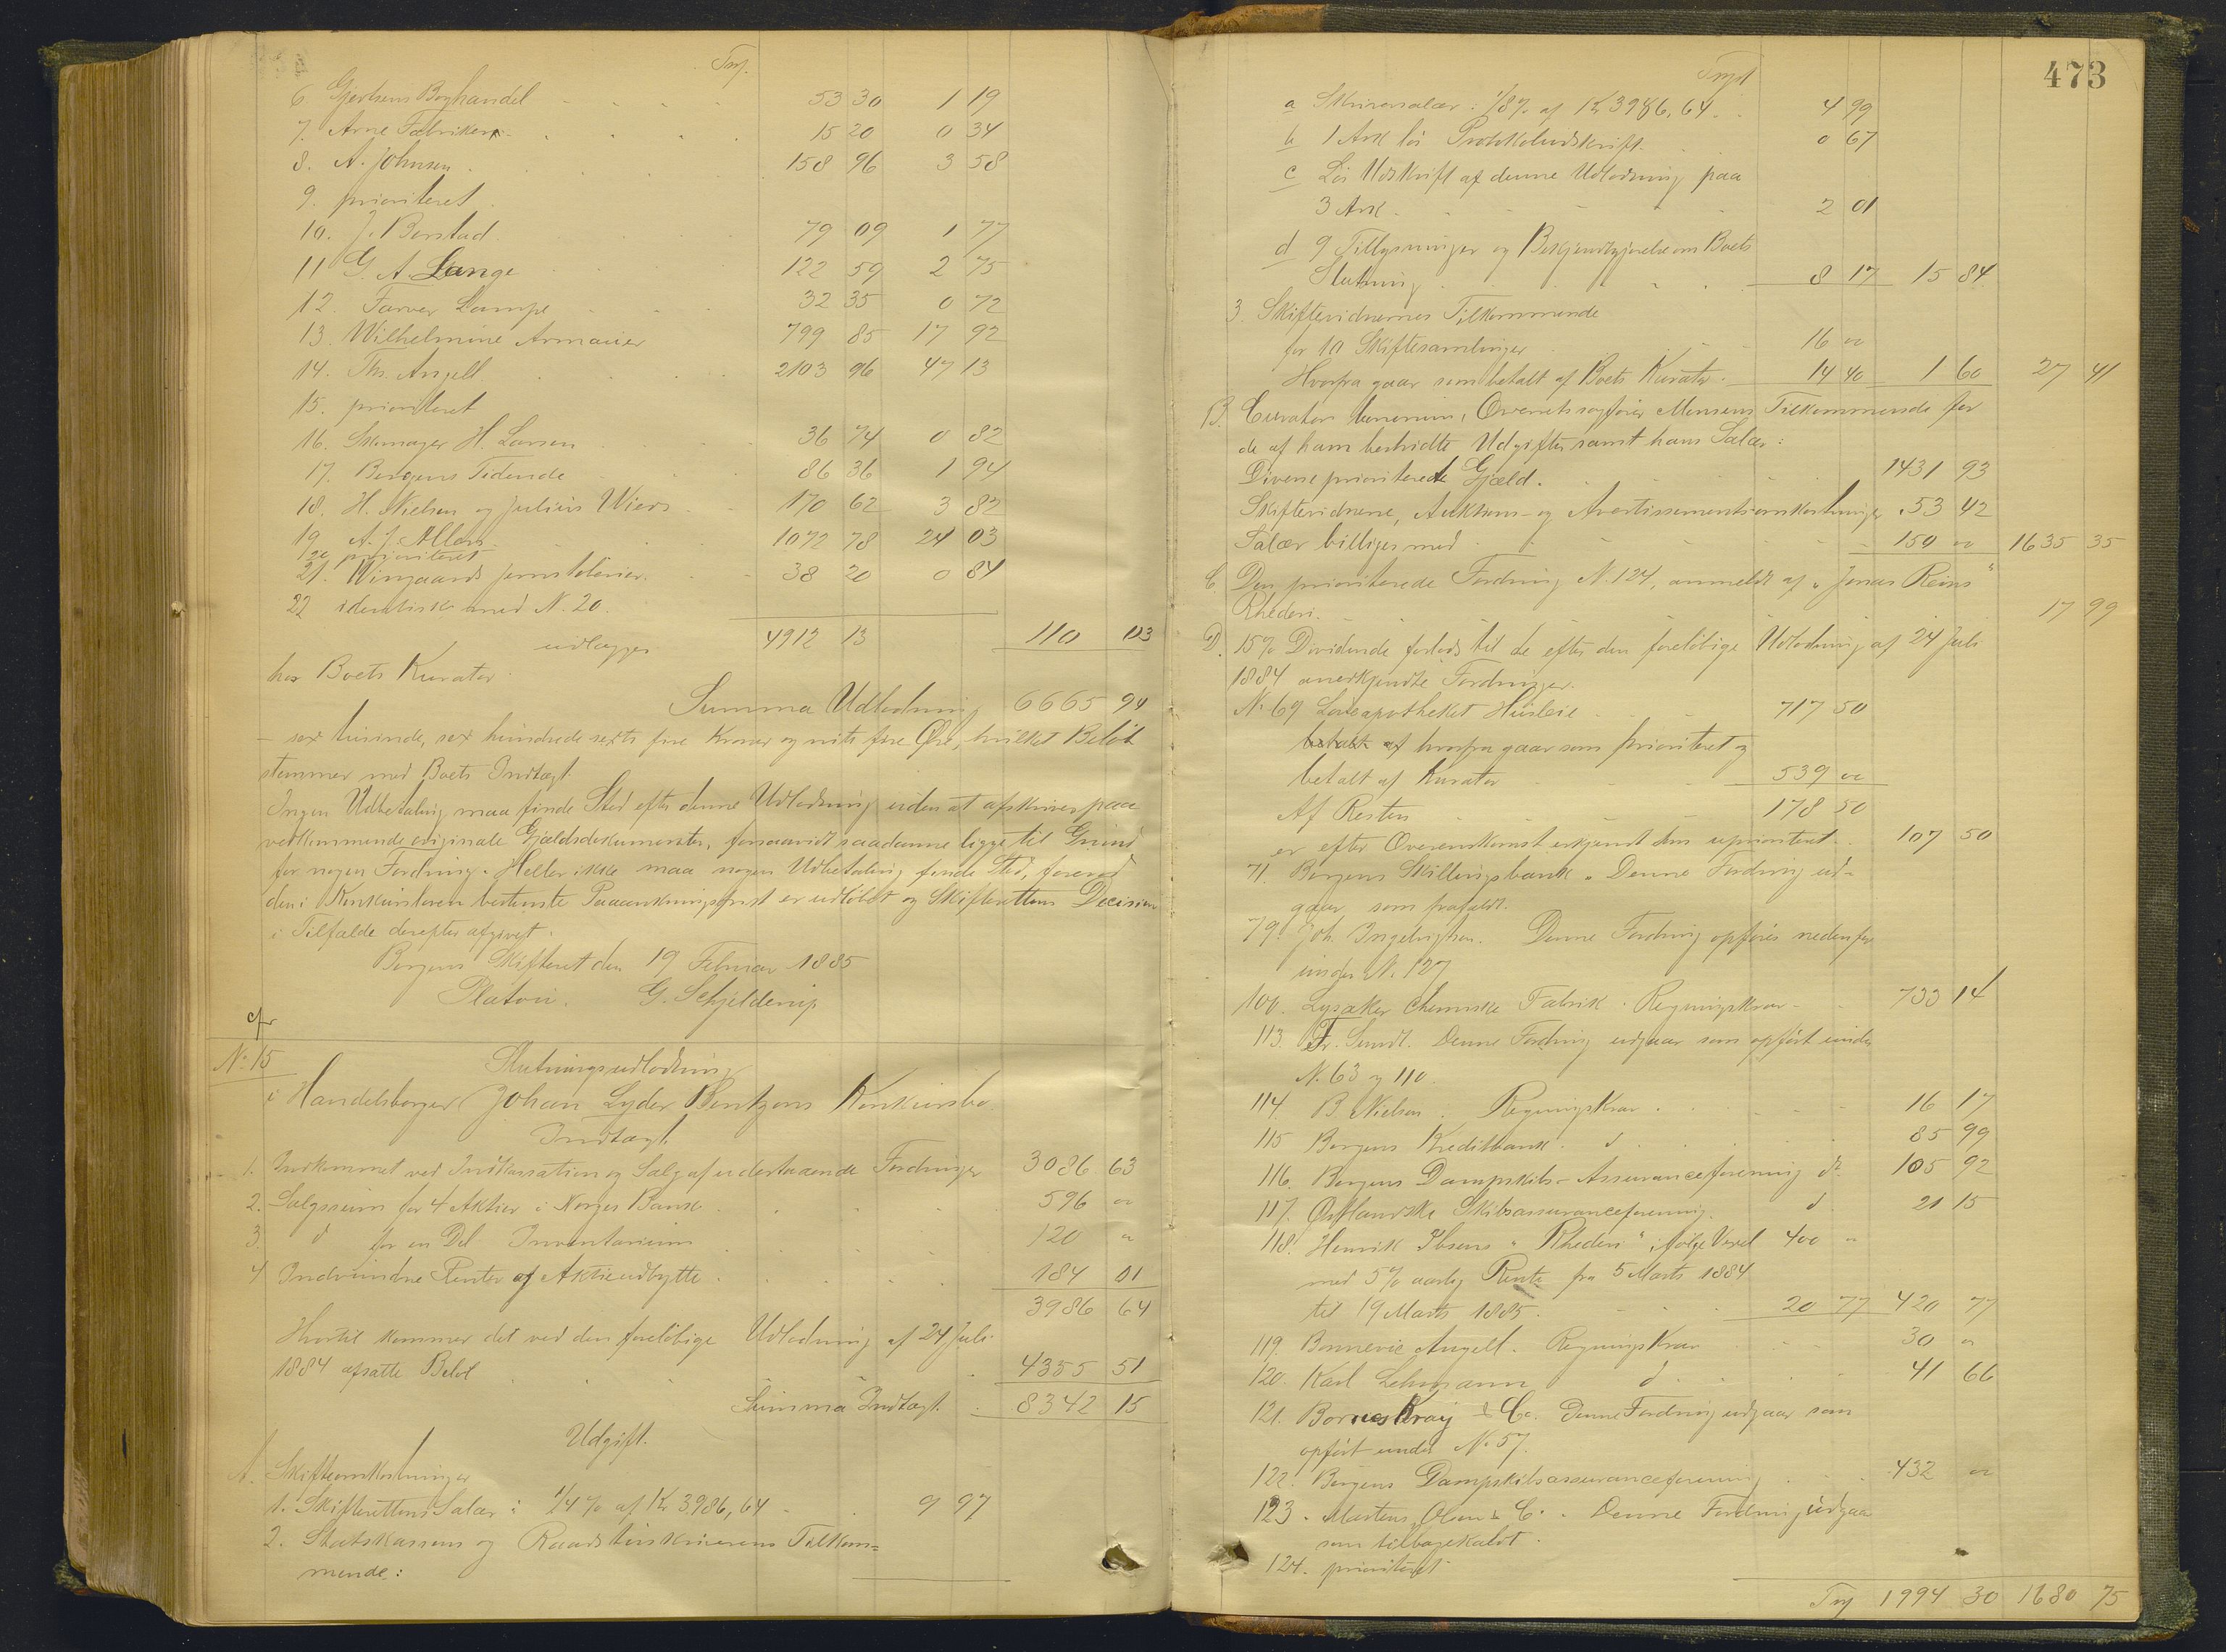 Trsp.
6 Gjertsens Boghandel 53 30 1 19
7. Arne Fabriker 15 20 0 34
8. A. Johnsen 158 96 3 58
9. prioriteret
10. J. Berstad 79 09 1 77
11 G. A. Lange 122 59 2 75
12. Farver Lampe 32 35 0 72
13. Wilhelmine Armauer 799 85 17 92
14. Ths. Angell 2103 96 47 13
15. prioriteret
16. Skomager H. Larsen 36 74 0 82
17. Bergens Tidende 86 36 1 94
18. H. Nielsen og Julius Wiers 170 62 3 82
19 A. J. Allers 1072 78 24 03
20 prioriteret
21. Wingaards Jernstøberier 38 20 0 84
22 identisk med N. 20.
udlægges 4912 13 110 03
hos Boets Kurator.
Summa Udlodning 6665 94
– sex tusinde, sex hundrede sexti fire Kroner og niti fire Øre, hvilket Beløb
stemmer med Boets Indtægt.
Ingen Udbetaling maa finde Sted efter denne Udlodning uden at afskrives paa
vedkommende originale Gjældsdokumenter, forsaavidt saadanne ligge til Grund
for nogen Fordring. Heller ikke maa nogen Udbetaling finde Sted, forend
den i Konkursloven bestemte Paaankningsfrist er udløbet og Skifterettens Decision
i Tilfælde derefter afgivet.
Bergens Skifteret den 19 Februar 1885
Platou. G. Schjelderup
cfr
No 15
Slutningsudlodning
i Handelsborger Johan Lyder Bentzens Konkursbo
Indtægt.
1. Indkommet ved Indkassation og Salg af udestaaende Fordringer 3086 63
2. Salgssum for 4 Aktier i Norges Bank 596 "
3. d for en Del Inventarium 120 "
4 Indvundne Renter af Aktieudbytte 184 01
3986 64
Hvortil kommer det ved den foreløbige Udlodning af 24 Juli
1884 afsatte Beløb 4355 51
Summa Indtægt. 8342 15
Udgift.
A. Skifteomkostninger
1. Skifterettens Salær: 1/4 % af Kr 3986,64 9 97
2. Statskassens og Raadstuskriverens Tilkom=
mende:
473
Trspt
a Skriversalær: 1/8 % af Kr 3986,64. 4 99
b 1 Ark til Protokoludskrift. 0 67
c Løs Udskrift af denne Udlodning paa
3 Ark. 2 01
d 9 Tillysninger og Bekjendtgjørelse om Boets
Slutning 8 17 15 84
3. Skiftevidnernes Tilkommende
for 10 Skiftesamlinger 16 "
Hvorfra gaar som betalt af Boets Kurator 14 40 1 60 27 41
B. Curator bonorum, Overretssagfører Monsens Tilkommende for
de af ham bestridte Udgifter samt hans Salær:
Diverse prioriterede Gjæld. 1431 93
Skiftevidnerne, Auktions- og Avertissementsomkostninger 53 42
Salær billiges med 150 " 1635 35
C. Den prioriterede Fordring N. 124, anmeldt af "Jonas Reins"
Rhederi. 17 99
D. 15% Dividende forlods til de efter den foreløbige Udlodning af 24 Juli
1884 anerkjendte Fordringer.
No 69 Løveapotheket Husleie 717 50
betalt af hvorfra gaar som prioriteret og
betalt af Kurator 539 "
Af Resten 178 50
er efter Overenskomst erkjendt som uprioriteret. 107 50
71. Bergens Skillingsbank. Denne Fordring ud-
gaar som frafaldt.
79. Joh. Ingebrigtsen. Denne Fordring opføres nedenfor
under N. 127
100. Lysaker chemiske Fabrik. Regningskrav 733 14
113. Fr. Sundt. Denne Fordring udgaar som opført under
N. 63 og 110.
114. B. Nielsen. Regningskrav. 16 17
115 Bergens Kreditbank. d 85 99
116. Bergens Dampskibs-Assuranceforening do 105 92
117. Østlandske Skibsassuranceforening. d 21 15
118. Henrik Ibsens "Rhederi" ifølge Vexel 400 "
med 5% aarlig Rente fra 5 Marts 1884
til 19 Marts 1885. 20 77 420 77
119. Bonnevie Angell. Regningskrav 30 "
120. Karl Lehmann d 41 66
121. & Co. Denne Fordring udgaar som
opført under No 57.
122. Bergens Dampskibsassuranceforening 432 "
123. Martens, Olsen & Co. Denne Fordring udgaar
som tilbagekaldt.
124. prioriteret
Trsp 1994 30 1680 75